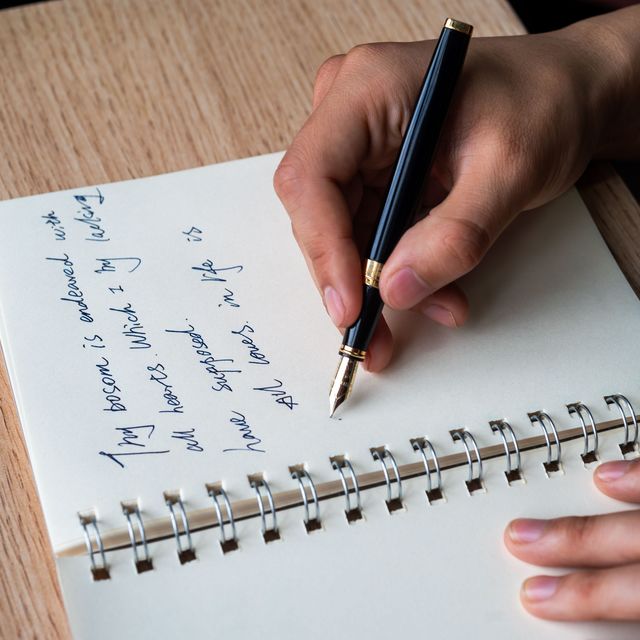 Thy bosom is endeared with
all hearts. Which I by lacking
have supposed.
All loves in life is